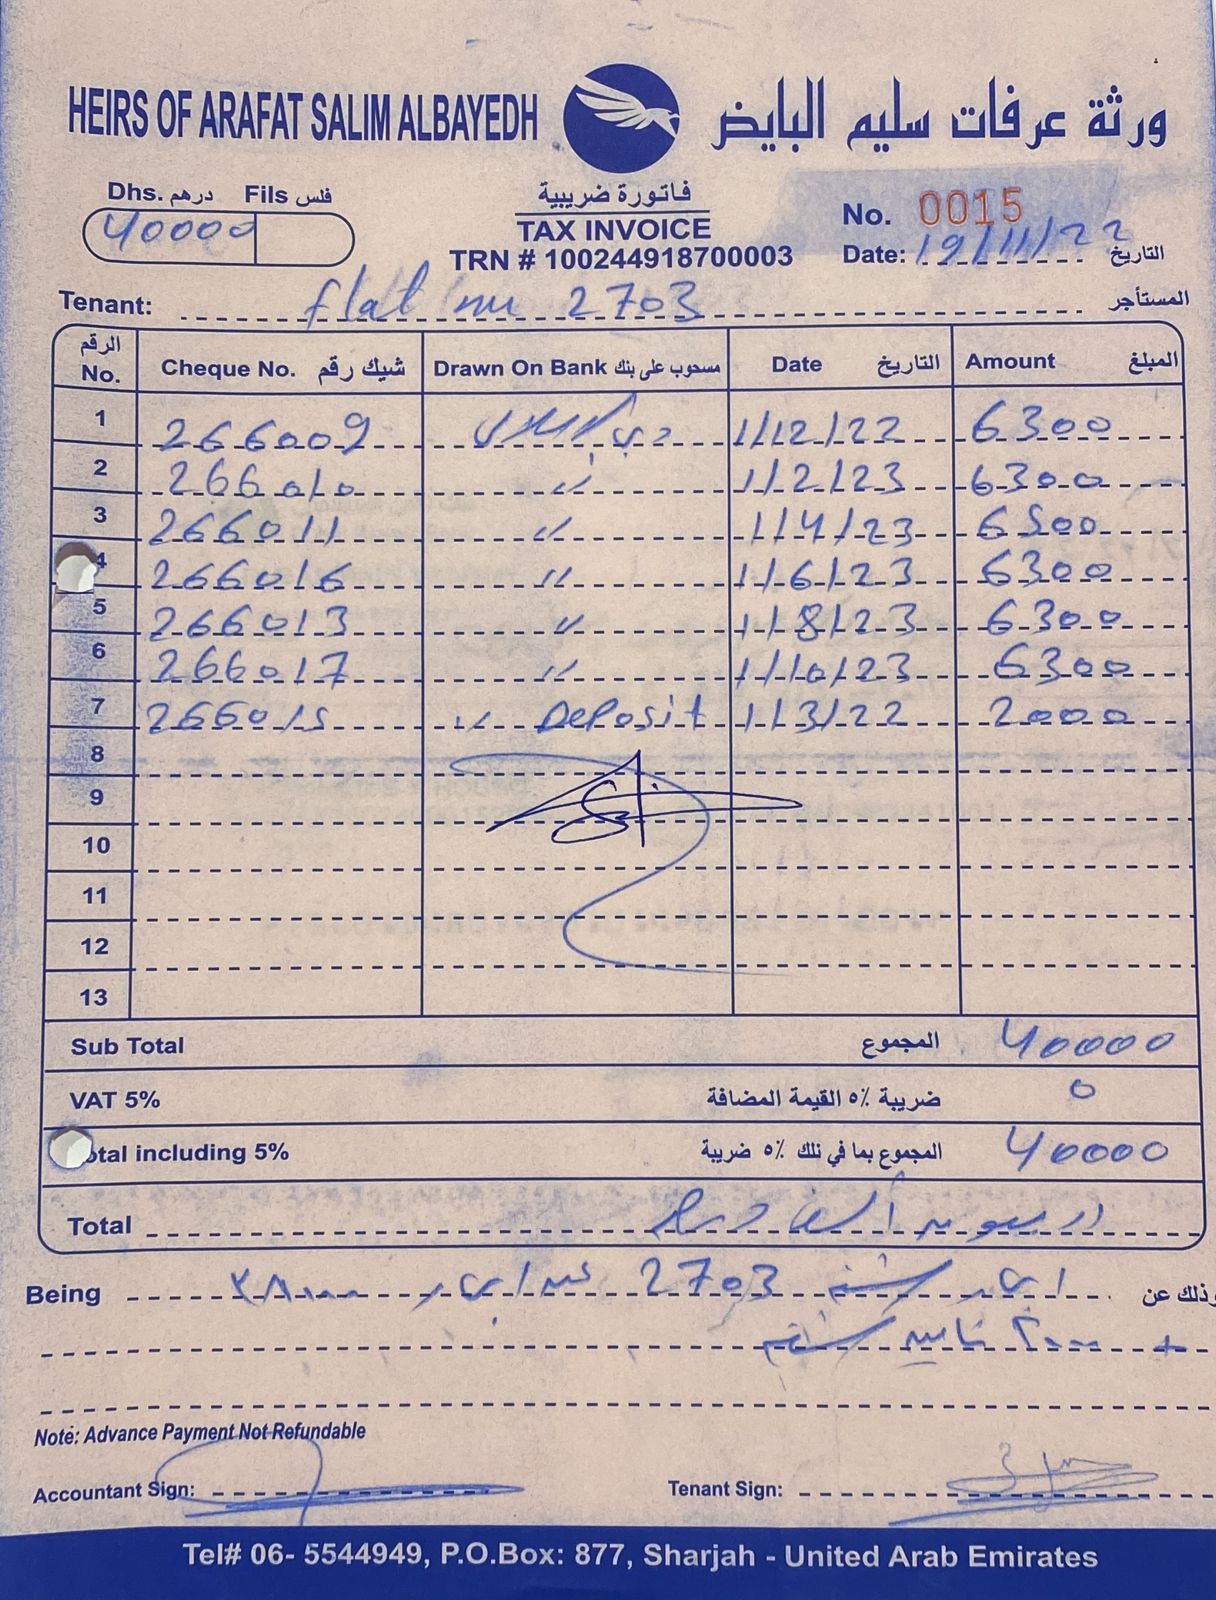 HEIRS OF ARAFAT SALIM ALBAYEDH ورثة عرفات سليم البايض
Dhs. درهم Fils فلس
40000
فاتورة ضريبية
TAX INVOICE
TRN # 100244918700003
No. 0015
Date: 19/11/22 التاريخ
Tenant: flat 2703 المستأجر
الرقم No. Cheque No. شيك رقم Drawn On Bank مسحوب على بنك Date التاريخ Amount المبلغ
1 266009 دبي الإسلامي 1/12/22 6300
2 266010 " 1/2/23 6300
3 266011 " 1/4/23 6300
4 266016 " 1/6/23 6300
5 266013 " 1/8/23 6300
6 266017 " 1/10/23 6300
7 266015 " Deposit 1/3/22 2000
8
9
10
11
12
13
Sub Total المجموع 40000
VAT 5% ضريبة ٥٪ القيمة المضافة 0
otal including 5% المجموع بما في ذلك ٥٪ ضريبة 40000
Total اربعون ألف درهم
Being وذلك عن ايجار شقة 2703 عن ايجار ٣٨٠٠٠
+ ٢٠٠٠ تأمين شقة
Note: Advance Payment Not Refundable
Accountant Sign: Tenant Sign:
Tel# 06- 5544949, P.O.Box: 877, Sharjah - United Arab Emirates